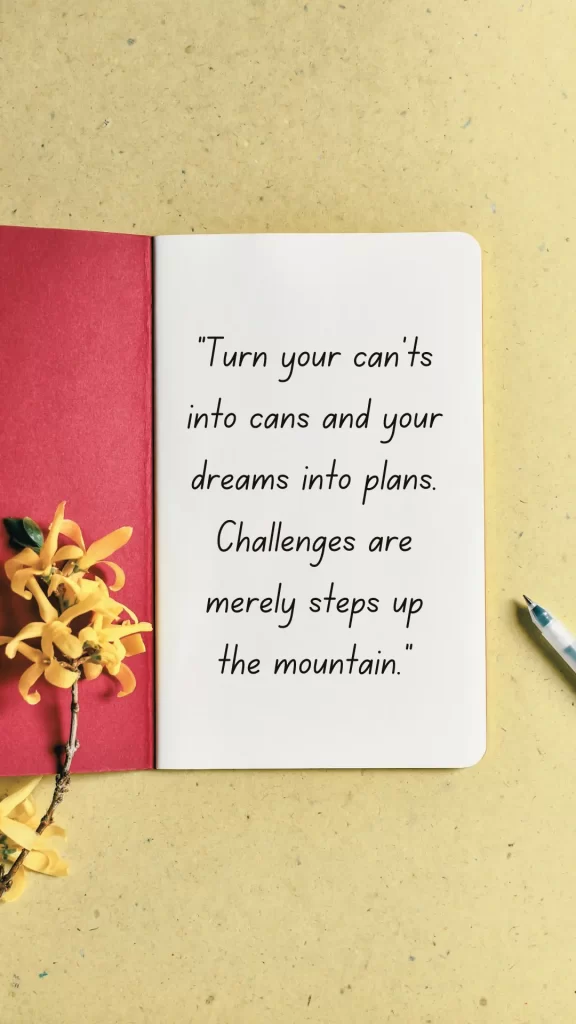 "Turn your can'ts
into cans and your
dreams into plans.
Challenges are
merely steps up
the mountain."